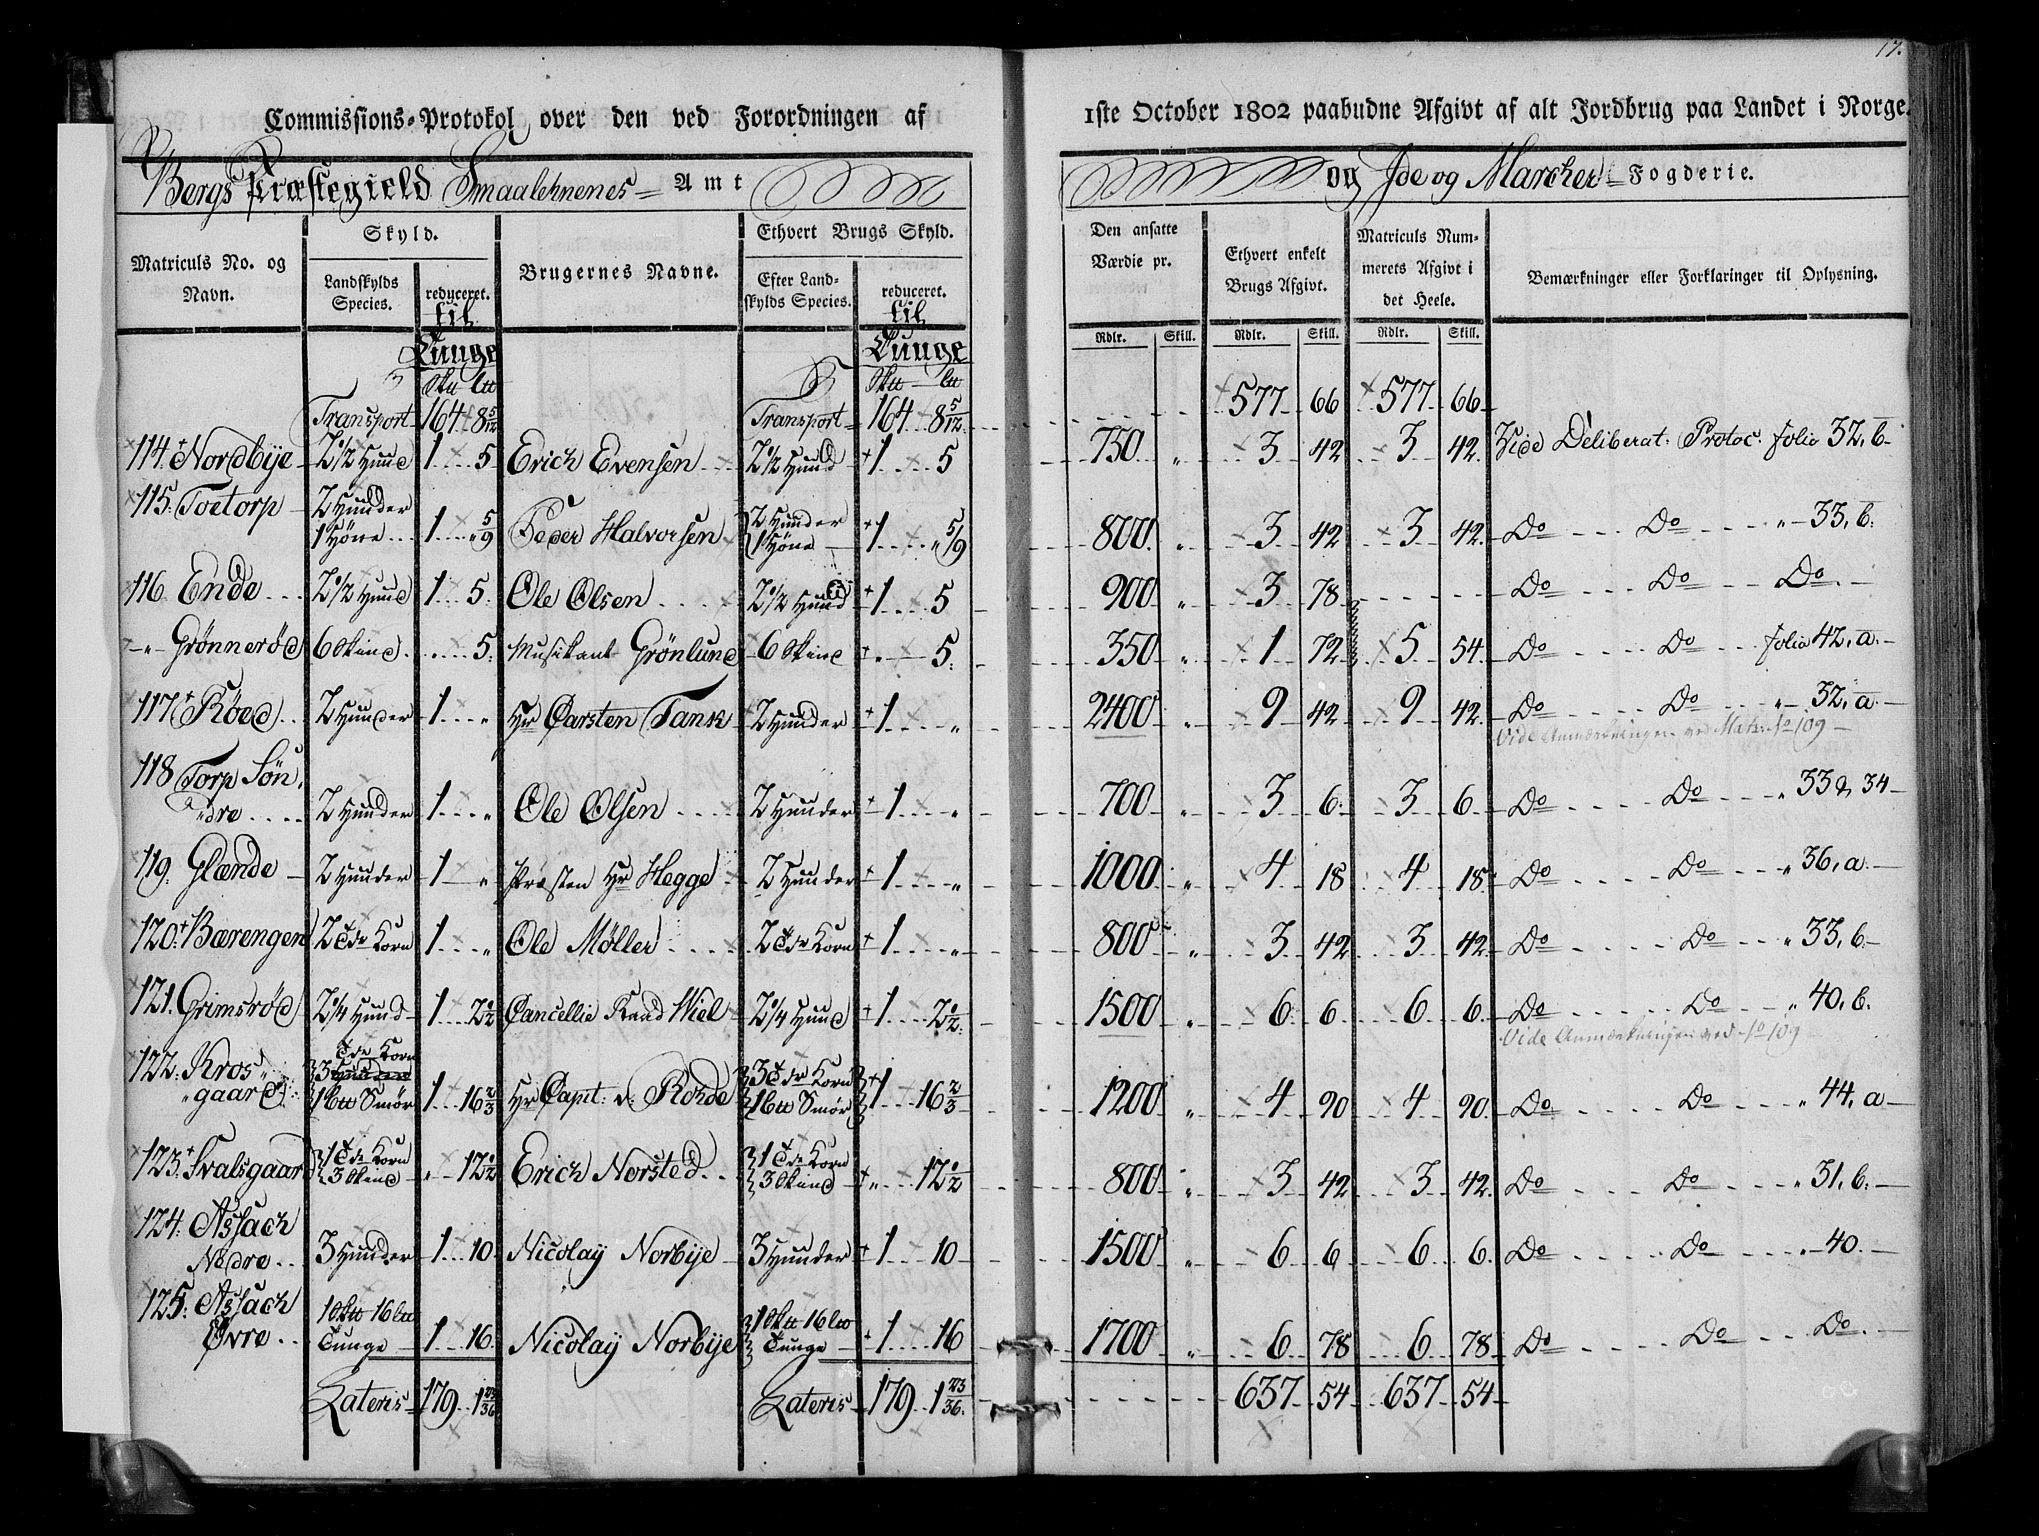 17.
Commissions-Protokol over den ved Forordningen af 1ste October 1802 paabudne Afgivt af alt Jordbrug paa Landet i Norge.
Bergs Præstegield Smaalehnenes Amt og Ide og Marcker Fogderie.
Matriculs No. og Navn. Skyld. Landskylds Species. reduceret. til Tunge Brugernes Navne. Ethvert Brugs Skyld. Efter Landskylds Species. reduceret. til Tunge Den ansatte Værdie pr. Ethvert enkelt Brugs Afgivt. Matriculs Nummerets Afgivt i det Heele. Bemærkninger eller Forklaringer til Oplysning.
Rdlr. Skill. Rdlr. Skill. Rdlr. Skill.
Transport 164 8 5/12 Transport 164 8 5/12 577 66 577 66
114. Nordbye 2 1/2 Hund 1 5 Erich Evensen 2 1/2 Hund 1 5 750 " 3 42 3 42 Vide Deliberat: Protoc: folio 32, b
115. Toetorp 2 Hunder 1 Høne 1 " 5/9 Peder Halvorsen 2 Hunder 1 Høne 1 " 5/9 800 " 3 42 3 42 Do Do " 33, b.
116. Ende 2 1/2 Hund 1 5 Ole Olsen 2 1/2 Hund 1 5 900 " 3 78 Do Do Do
" Grønnerød 6 Skind 5 Musikant Grönlund 6 Skind " 5 350 " 1 72 5 54 Do Do folio 42, a.
117. Röed 2 Hunder 1 " Hr Carsten Tank 2 Hunder 1 " 2400 " 9 42 9 42 Do Do " 32, a.
Vide Anmærkningen ved Matr: No 109
118 Torp Søndre 2 Hunder 1 " Ole Olsen 2 Hunder 1 " 700 " 3 6 3 6 Do Do " 33 & 34
119. Glænde 2 Hunder 1 " Præsten Hr Hegge 2 Hunder 1 " 1000 " 4 18 4 18 Do Do " 36, a.
120. Bærengen 2 Tdr Korn 1 " Ole Møller 2 Tdr Korn 1 " 800 " 3 42 3 42 Do Do " 33, b.
121. Grimsrød 2 1/4 Hund 1 2 1/2 Cancellie Raad Wiel 2 1/4 Hund 1 2 1/2 1500 " 6 6 6 6 Do Do " 40, b.
Vide Anmærkningen ved No 109
122. Krosgaard 3 Tdr Korn 1 btt Smør 1 16 2/3 Hr Capt: v: Rohde 3 Tdr Korn 1 btt Smør 1 16 2/3 1200 " 4 90 4 90 Do Do " 44, a
123. Svalsgaard 1 Tde Korn 3 Skind " 12 1/2 Erich Norsted 1 Tde Korn 3 Skind " 12 1/2 800 " 3 42 3 42 Do Do " 31, b.
124. Assach Nedre 3 Hunder 1 10 Nicolay Norbye 3 Hunder 1 10 1500 " 6 6 6 6 Do Do " 40.
125. Assach Øvre 1 Sktt 16 btt Tunge 1 16 Nicolay Norbye 1 Sktt 16 btt Tunge 1 16 1700 " 6 78 6 78 Do Do Do
Lateris 179 1 23/36 Lateris 179 1 23/36 637 54 637 54